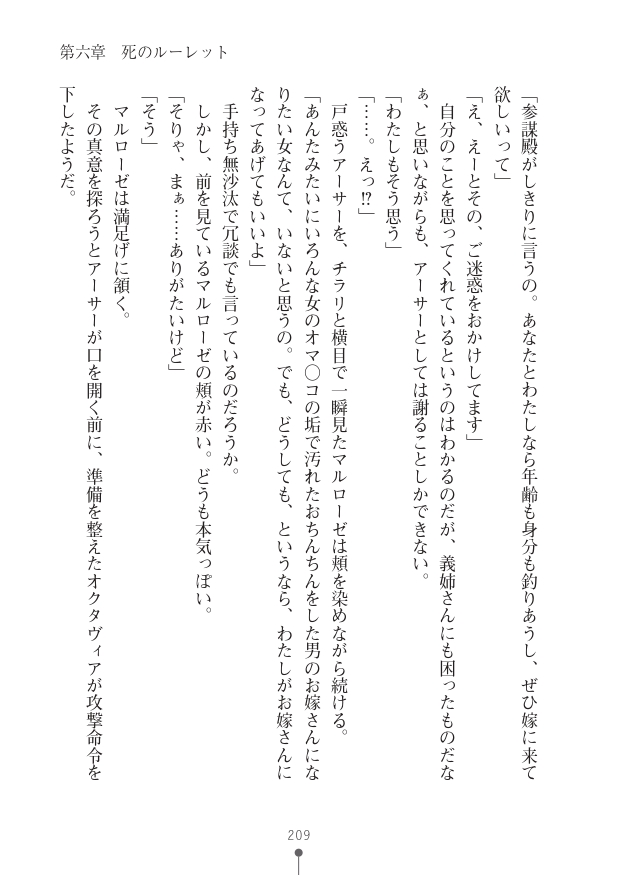 第六章　死のルーレット
「参謀殿がしきりに言うの。あなたとわたしなら年齢も身分も釣りあうし、ぜひ嫁に来て
欲しいって」
「え、えーとその、ご迷惑をおかけしてます」
　自分のことを思ってくれているというのはわかるのだが、義姉さんにも困ったものだな
ぁ、と思いながらも、アーサーとしては謝ることしかできない。
「わたしもそう思う」
「……。えっ!?」
　戸惑うアーサーを、チラリと横目で一瞬見たマルローゼは頬を染めながら続ける。
「あんたみたいにいろんな女のオマ〇コの垢で汚れたおちんちんをした男のお嫁さんにな
りたい女なんて、いないと思うの。でも、どうしても、というなら、わたしがお嫁さんに
なってあげてもいいよ」
　手持ち無沙汰で冗談でも言っているのだろうか。
　しかし、前を見ているマルローゼの頬が赤い。どうも本気っぽい。
「そりゃ、まぁ……ありがたいけど」
「そう」
　マルローゼは満足げに頷く。
　その真意を探ろうとアーサーが口を開く前に、準備を整えたオクタヴィアが攻撃命令を
下したようだ。
209